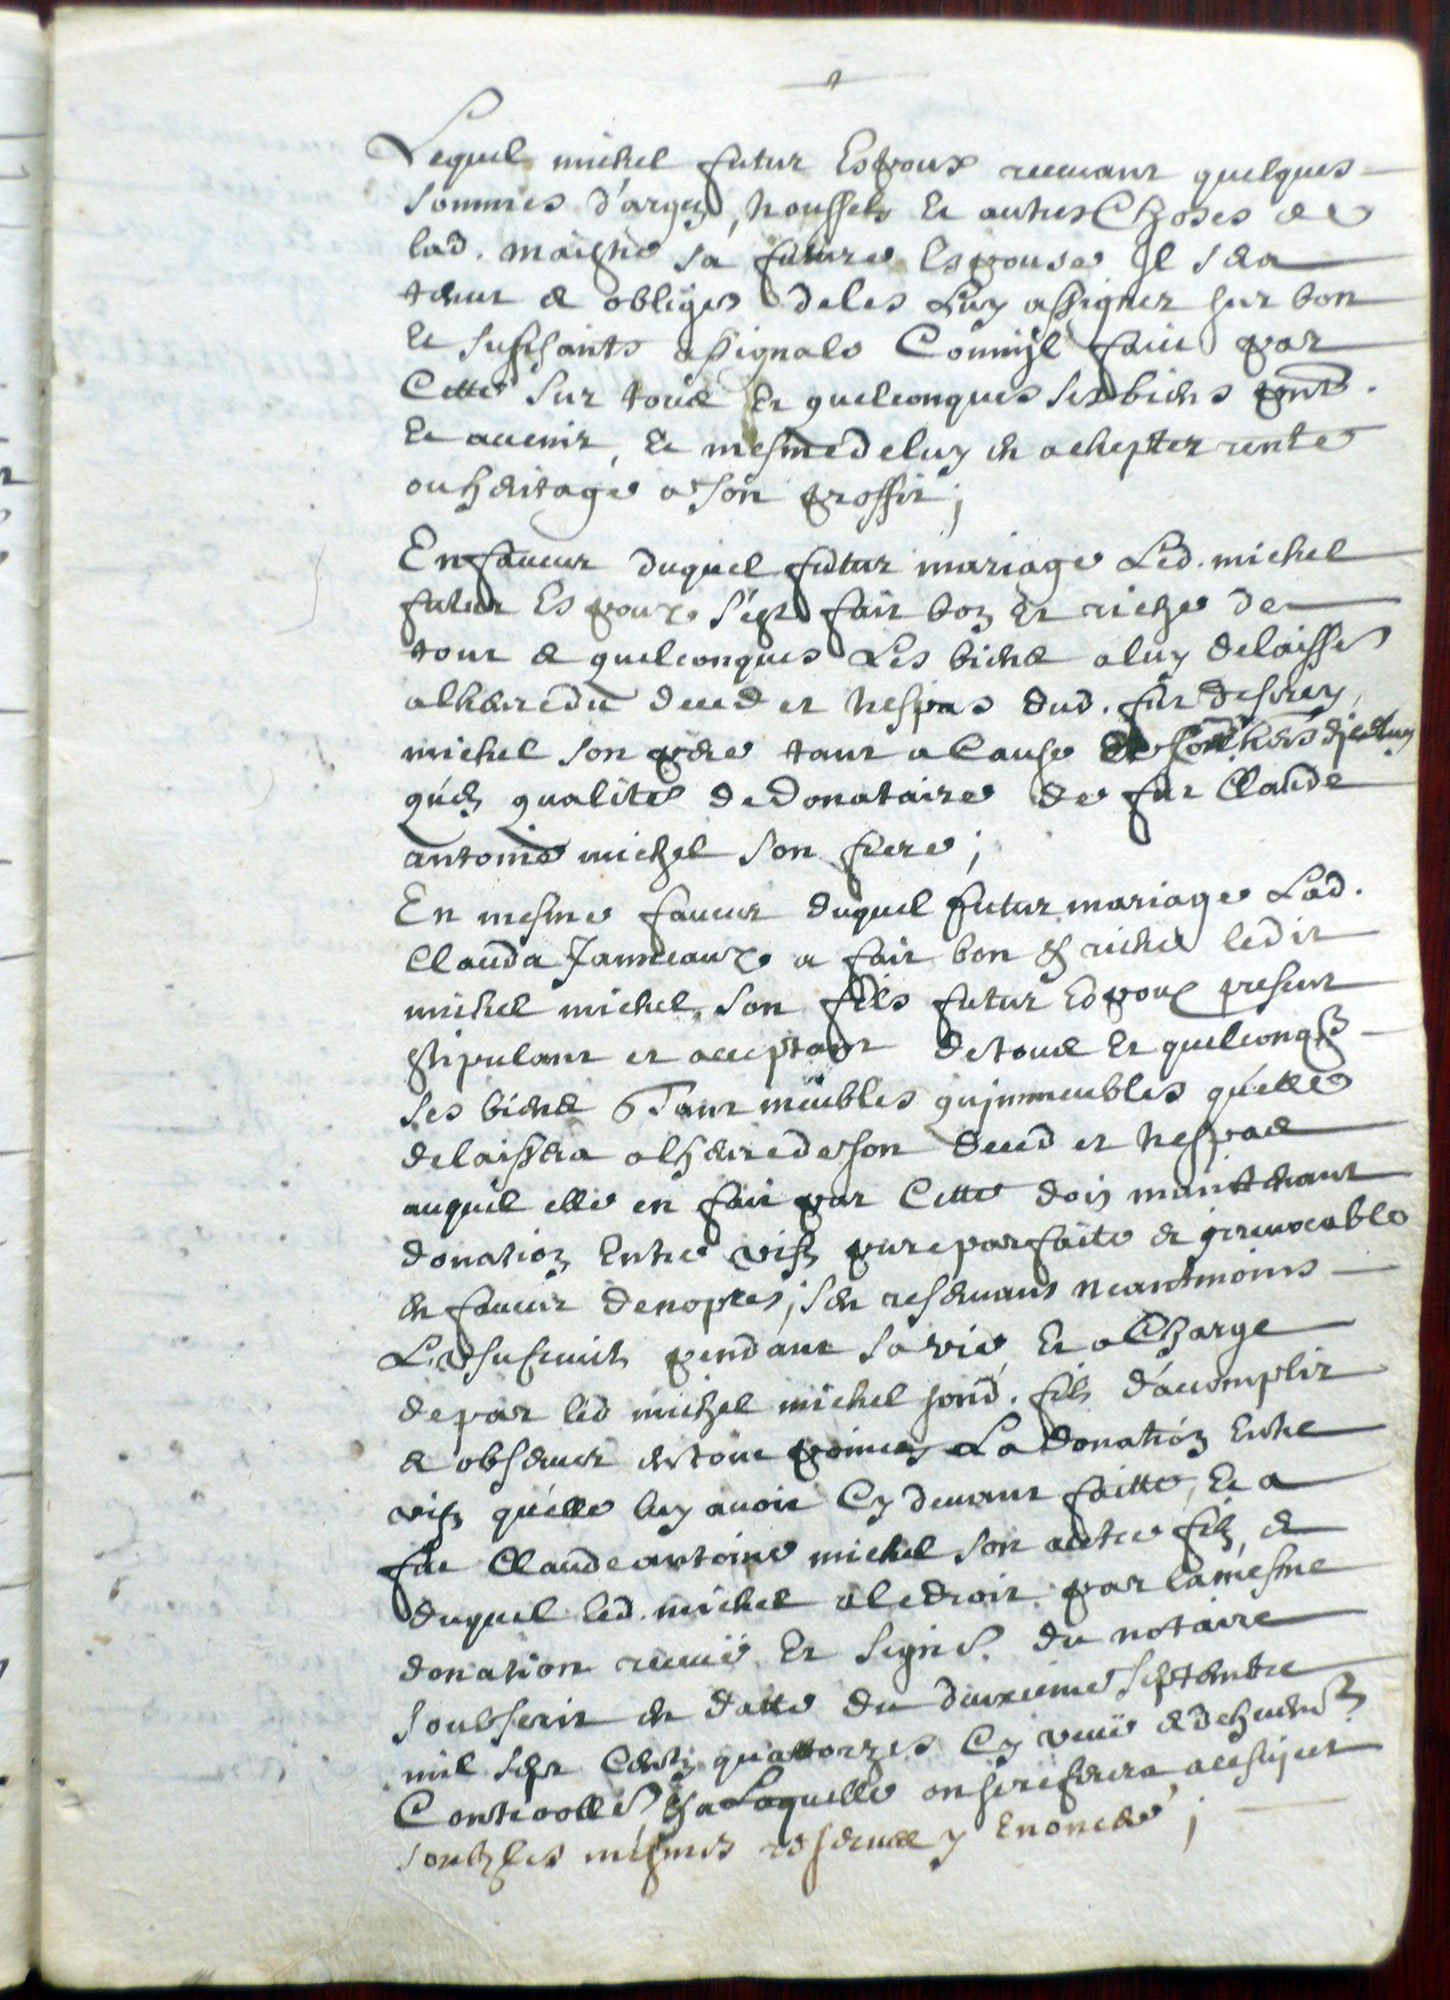 Lequel michel futur Espoux recevant quelques
sommes d'argen, troussels et autres Choses de
lad. maistre sa future Espouse Il sera
tenut et obligez deles Luy assigner sur bon
et suffisants assignals Comm'jl fait par
Cette sur tous Et quelconques ses biens pnts.
Et avenir, et mesme deluy en achepter rente
ou heritage a son proffit;
En faveur duquel futur mariage Led. michel
futur Espoux s'est fait bon et riche de
tout et quelconques Les biens a luy delaissés
alheure du deced et trespas dud. fut
michel son pere tant a Cause de
qu'en qualité de Donataire de fut Claude
antoine michel son frere;
En mesme faveur duquel futur mariage Lad.
Clauda Janneaux a fait bon et riche ledit
michel michel son fils futur Espoux present
stipulant et acceptant detous Et quelconqs
ses biens Tant meubles qu'jmmeubles qu'elle
delaissera alheure de son deced et trespas
auquel elle en fait par Cette dois maintenant
donation Entre vifs pure parfaite et jrrevocable
en faveur de nopces; s'en reservant neantmoins
L'vsufruit pendant sa vie, Et a Charge
de par led michel michel sond. fils d'accomplir
et observer en tous poincts La donation Entre
vifs qu'elle luy avoit Cy devant faitte, Et a
fut Claude antoine michel son autre fils, et
duquel led. michel a le droit par la mesme
donation receuë Et signés du notaire
soubscrit en datte du deuxieme septembre
mil sept Cents quattorzes Cy veuë et
Contrôllés, Et a Laquelle on se referera a ce sujet
soubs les mesmes reserves y Enoncés;